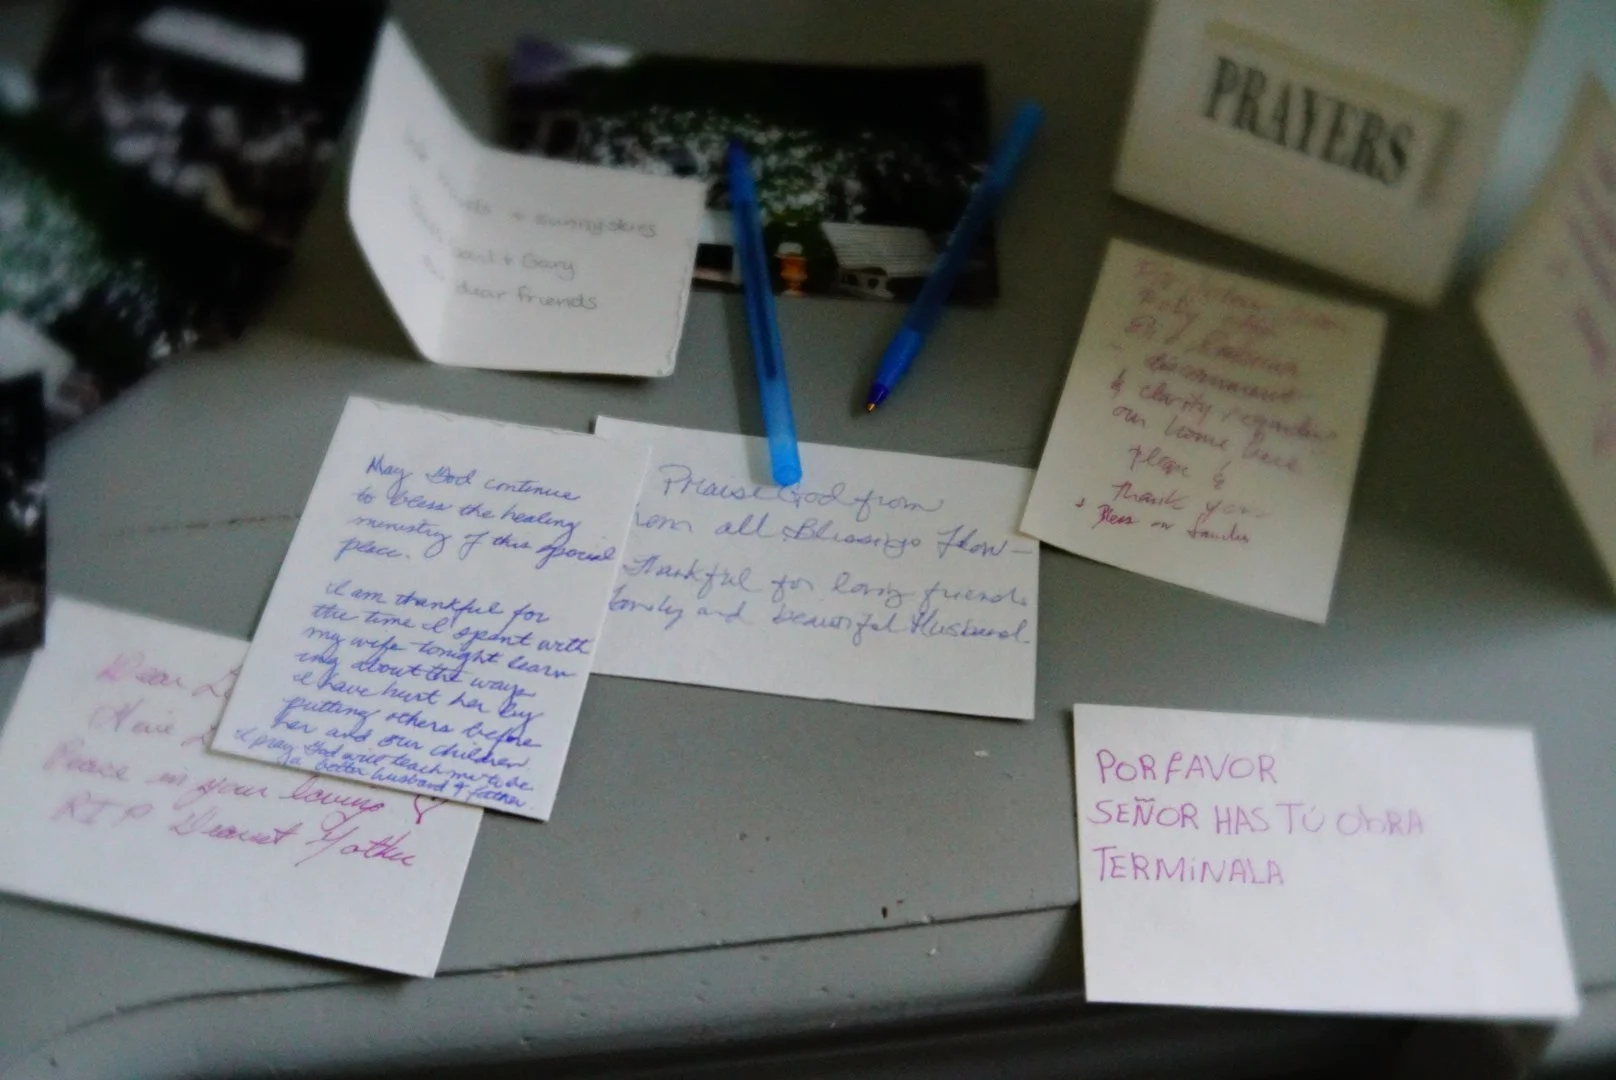 PRAYERS
+ sunny skies
+ Gary
dear friends
discernment
& clarity regarding
our home here
Please &
Thank you
May God continue
to bless the healing
ministry of this special
place.
I am thankful for
the time I spent with
my wife tonight learn
ing about the ways
I have hurt her by
putting others before
her and our children
I pray God will teach me to be
a better husband & father.
Praise God from
om all Blessings Flow—
Thankful for loving friends
family and beautiful Husband
Dear
Have
Peace in your loving
RIP Dearest Mother
POR FAVOR
SEÑOR HAS TÚ ObRA
TERMiNALA